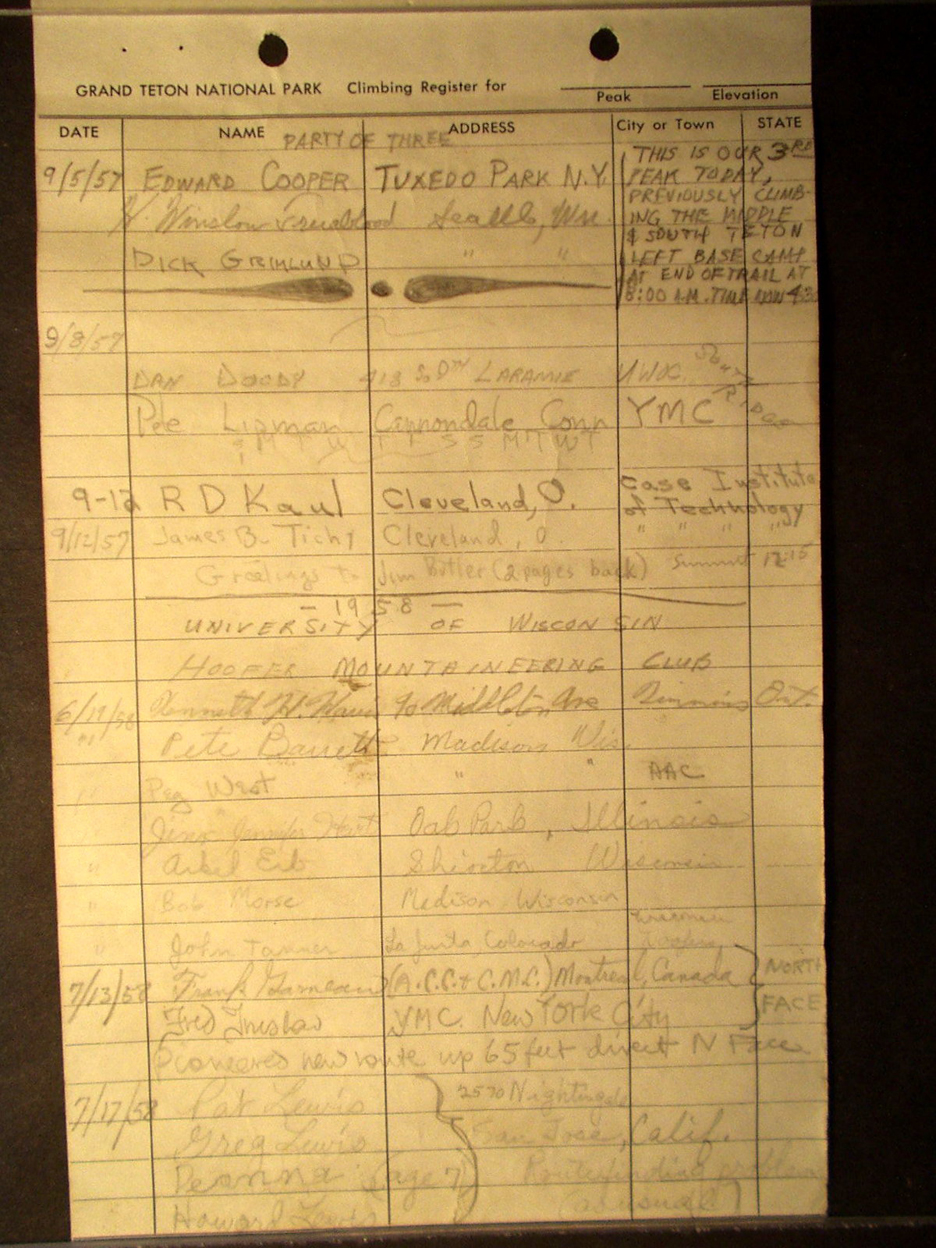 GRAND TETON NATIONAL PARK Climbing Register for
Peak Elevation
DATE NAME ADDRESS City or Town STATE
PARTY OF THREE
9/5/57 EDWARD COOPER TUXEDO PARK N.Y.
THIS IS OUR 3RD
PEAK TODAY,
PREVIOUSLY CLIMB-
ING THE MIDDLE
& SOUTH TETON
LEFT BASE CAMP
AT END OF TRAIL AT
8:00 A.M. TIME NOW 4:30
H. Winslow Trueblood Seattle, Wn.
DICK GRIMLUND " "
9/8/57
DAN DOODY 418 So LARAMIE UWOC SOUTH RIDGE
Pete Lipman Cannondale Conn YMC
S M T W T F S S M T W T
9-12 R D Kaul Cleveland, O. Case Institute
of Technology
9/12/57 James B. Tichy Cleveland, O. " " " "
Greetings to Jim Butler (2 pages back) Summit 12:15
- 1958 -
UNIVERSITY OF WISCONSIN
HOOFER MOUNTAINEERING CLUB
6/19/58 Kenneth H. 90 Middleton Ave Timmins Ont.
" Pete Barrett Madison Wis
" Peg West " " AAC
Jinx Jennifer Oak Park, Illinois
" Arkel Erb Shiocton Wisconsin
" Bob Morse Madison Wisconsin
" John Tanner La Junta Colorado Hoofers
7/13/58 Frank Garneau (A.C.C. & C.M.C.) Montreal, Canada NORTH
Fred YMC. New York City FACE
Pioneered new route up 65 feet direct N Face
7/17/58 Pat Lewis 2570 Nightingale
Greg Lewis San Jose, Calif.
Deanna (age 7) Routefinding problem
Howard Lewis (as usual)